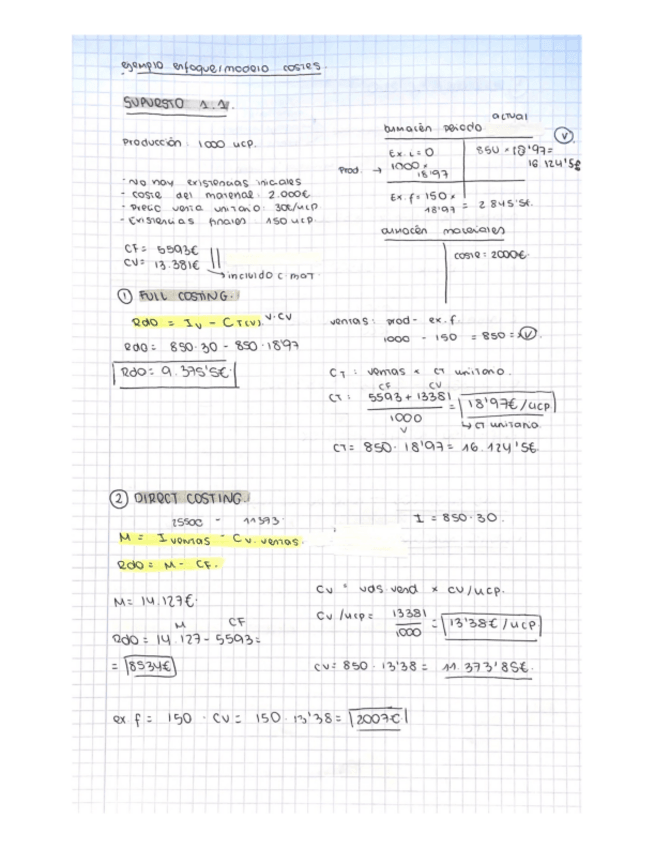 ejemplo enfoque/modelo costes.
SUPUESTO 1.1.
Producción: 1000 ucp.
- No hay existencias iniciales
- coste del material: 2.000€
- Precio venta unitario: 30€/ucp
- Existencias finales: 150 ucp.
CF = 5593€
CV = 13.381€
↳ incluido c. mat.
almacén periodo actual
Prod. →
Ex. i = 0
1000 × 18'97
850 × 18'97 = 16.124'5€
V
Ex. f = 150 × 18'97 = 2845'5€.
almacén materiales
coste: 2000€.
① FULL COSTING.
Rdo = Iv - CT(v). V. CV
Rdo = 850·30 - 850·18'97
Rdo = 9.375'5€.
ventas: prod - ex. f.
1000 - 150 = 850 = V.
CT: ventas × CT unitario.
CF CV
CT: 5593 + 13381 / 1000 = 18'97€/ucp
V
↳ CT unitario
CT = 850 · 18'97 = 16.124'5€.
② DIRECT COSTING.
25500 - 11393.
M = I ventas - Cv. ventas.
Rdo = M - CF.
I = 850·30.
M = 14.127€.
M CF
Rdo = 14.127 - 5593 =
= 8534€
Cv = uds vend × CV/ucp.
Cv/ucp = 13381 / 1000 = 13'38€/ucp
CV = 850 · 13'38 = 11.373'85€.
ex f = 150 · CV = 150 · 13'38 = 2007€